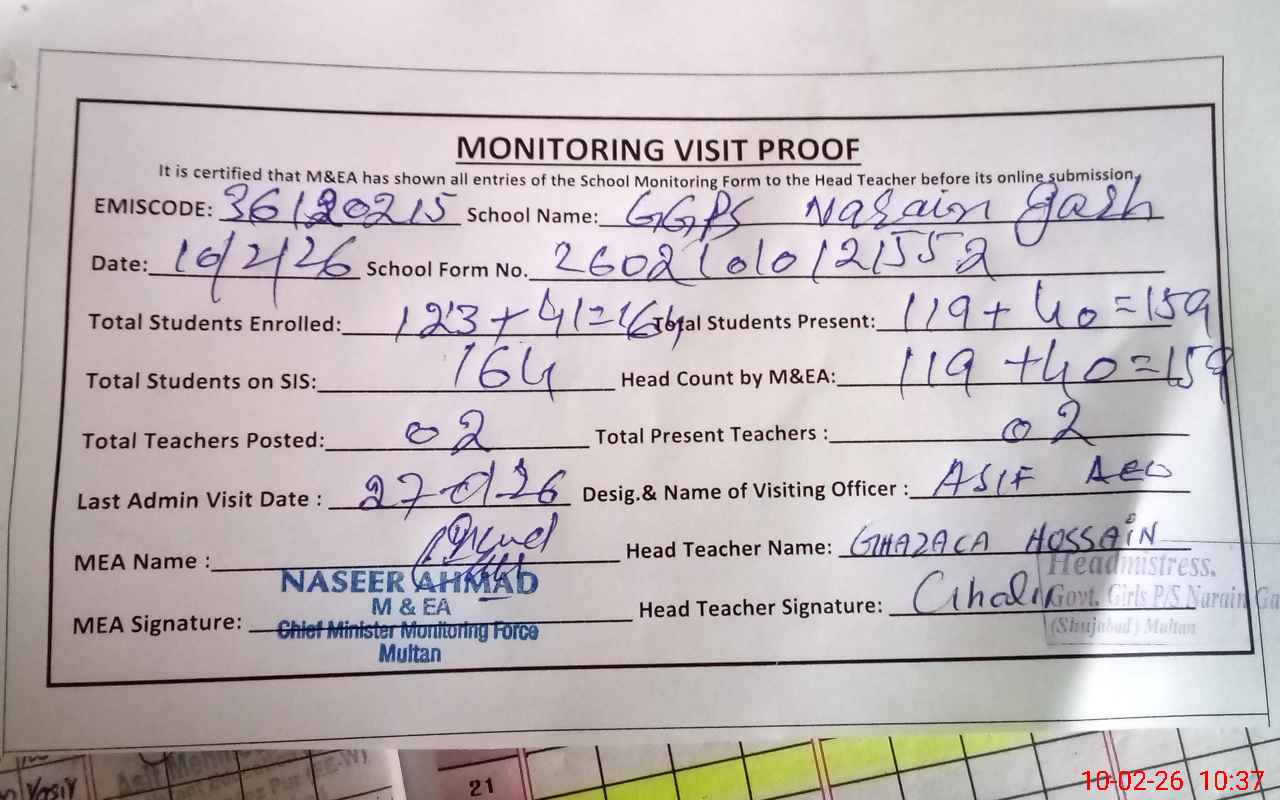 MONITORING VISIT PROOF
It is certified that M&EA has shown all entries of the School Monitoring Form to the Head Teacher before its online submission.
EMISCODE: 36120215 School Name: GGPS Narain garh
Date: 10/2/26 School Form No. 26021010121552
Total Students Enrolled: 123+41=164 Total Students Present: 119+40=159
Total Students on SIS: 164 Head Count by M&EA: 119+40=159
Total Teachers Posted: 02 Total Present Teachers : 02
Last Admin Visit Date : 27-01-26 Desig.& Name of Visiting Officer : ASIF AEO
MEA Name : Head Teacher Name: GHAZACA HOSSAIN
NASEER AHMAD
M & EA
Chief Minister Monitoring Force
Multan
MEA Signature: Head Teacher Signature:
Headmistress.
Govt. Girls P/S Narain Ga
(Shujabad) Multan
21
10-02-26 10:37